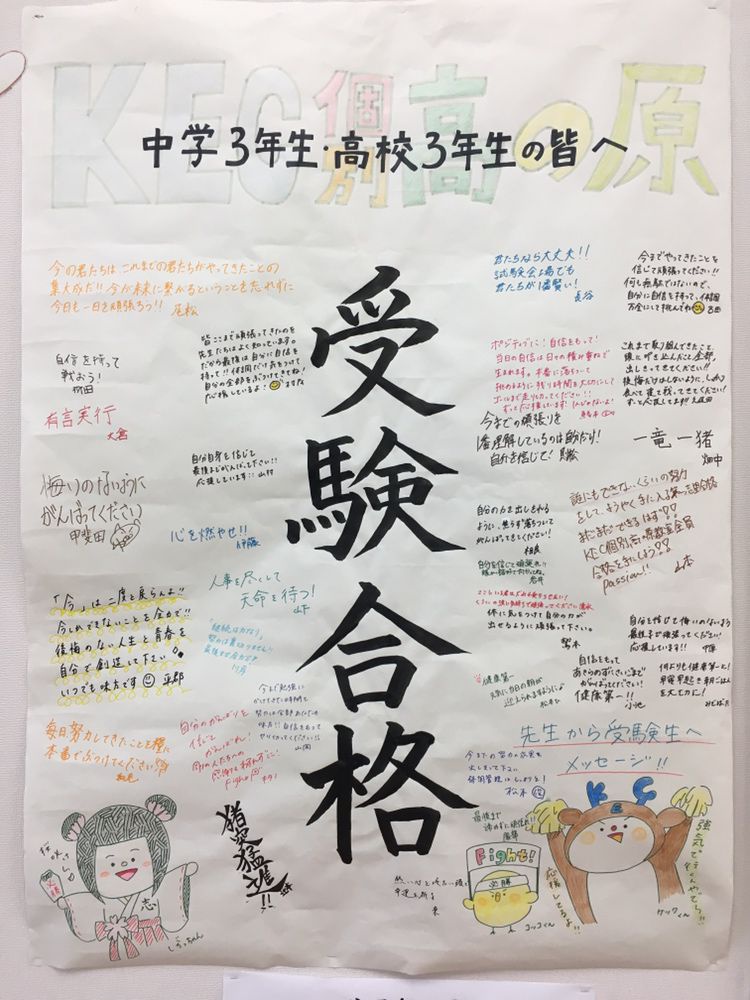 KEC個別高の原
中学3年生・高校3年生の皆へ
受験合格
今の君たちは、これまでの君たちがやってきたことの
集大成だ!!今が未来に繋がるということを忘れずに
今日も一日を頑張ろう!!尾松
君たちなら大丈夫!!
試験会場でも
君たちが1番賢い!
長谷
今までやってきたことを
信じて頑張ってください!!
何も無駄ではないので、
自分に自信を持って、体調
万全にして挑んでね 吉田
皆ここまで頑張ってきたのを
先生たちはよく知っています。
だから最後は自分に自信を
持って!!体調だけ気をつけて
自分の全部をぶつけてきてね!
応援しているよ!
自信を持って
戦おう!
有言実行
大倉
ポジティブに!自信をもって!
当日の自信は日々の積み重ねで
生まれます。本番に落ちついて
挑めるように残り時間を大切にして
ゴールまで走りぬけてください!!
これまで取り組んできたこと、
頭に叩き込んだこと全部、
出しきってきてください!!
後悔だけはしないように、しっかり
食べて寝て
今までの頑張りを
1番理解しているのは自分だ!
自分を信じて!
一竜一猪
畑中
自分自身を信じて
最後までがんばって下さい!!
応援しています!! 山村
悔いのないように
がんばってください
甲斐田
心を燃やせ!! 伊藤
自分の力を出しきれる
ように、焦らず落ちついて
がんばってきてください!
相良
誰にもできないくらいの努力
をして、ようやく手に入る第一志望合格
まだまだできるはず!!
KEC個別高の原教室全員
合格をきめましょう!!
passion!! 山本
自分を信じて頑張れ!!
岩井
「今」は二度と戻らんよ!!
今しかできないことを全力で!!
後悔のない人生と青春を
自分で創造して下さい!
いつでも味方です 平郡
人事を尽くして
天命を待つ! 山下
「継続は力なり」
努力は裏切りません!!
最後まで全力で!!
体に気をつけて自分の力が
出せるように頑張って下さい。
自分を信じて悔いのないよう
最後まで頑張ってください!
応援しています!!
自信をもって
あきらめずにさいごまで
がんばってください!
健康第一ー!! 小池
何よりも健康第一と!
早寝早起き朝ごはん
を大切に!
健康第一
毎日努力してきたことを糧に
本番でぶつけてください
自分のがんばりを
信じて
がんばれ!
周りの人たちへの
感謝を忘れずに!
Fight
山岡
先生から受験生へ
メッセージ!!
今までの努力の成果を
出しきって下さい
体調管理はしっかりと!
松木
猪突猛進!!
最後まで
諦めずに頑張れ!!
Fight!
必勝
コッコくん
強気で
応援してるよ!!
ケックくん
合格
志
しろっちゃん